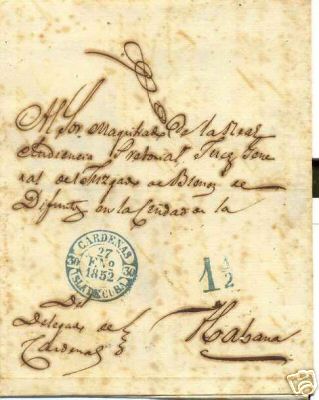 Al Sor. Magistrado de la Real
Audiencia Pretorial Juez Gene
ral del Juzgado de Bienes de
Difuntos en la Ciudad de la
CARDENAS
30 27 30
ENO
1852
ISLA DE CUBA
1 1/2
Del
Delegado de
Cardenas
Habana
eBay